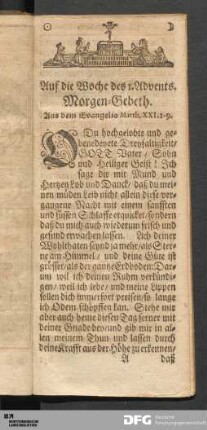 Auf die Woche des 1. Advents.
Morgen-Gebeth.
Aus dem Evangelio Matth. XXI. 1-9.
O Du hochgelobte und ge-
benedeyete Dreyfaltigkeit/
GOTT Vater / Sohn
und Heiliger Geist! Ich
sage dir mit Mund und
Hertzen Lob und Danck/ daß du mei-
nen müden Leib nicht allein diese ver-
gangene Nacht mit einem sanfften
und süssen Schlaffe erquicket/ sondern
daß du mich auch wiederum frisch und
gesund erwachen lassen. Ach deiner
Wohlthaten seynd ja mehr/ als Ster-
ne am Himmel/ und deine Güte ist
grösser/ als der gantze Erdboden: Dar-
um wil ich deinen Ruhm verkündi-
gen/ weil ich lebe/ und meine Lippen
sollen dich immerfort preisen/ so lange
ich Odem schöpffen kan. Stehe mir
aber auch heute diesen Tag ferner mit
deiner Gnade bey und gib mir in al-
len meinem Thun und lassen durch
deine Krafft aus der Höhe zu erkennen/
A daß
DFG
Deutsche
Forschungsgemeinschaft